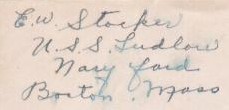 E. W. Stocker
U.S.S. Ludlow
Navy Yard
Boston, Mass